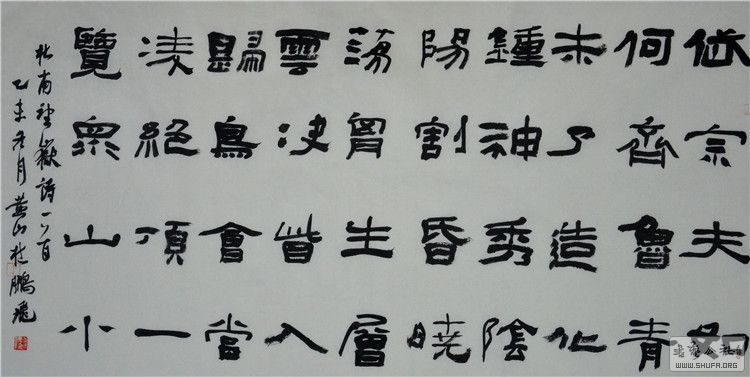 岱宗夫如
何齊魯青
未了造化
鍾神秀陰
陽割昏曉
蕩胷生層
雲決眥入
歸鳥會當
凌絕頂一
覽眾山小
杜甫望嶽詩一首
乙未冬月黄山杜鵬飛
WWW.SHUFA.ORG